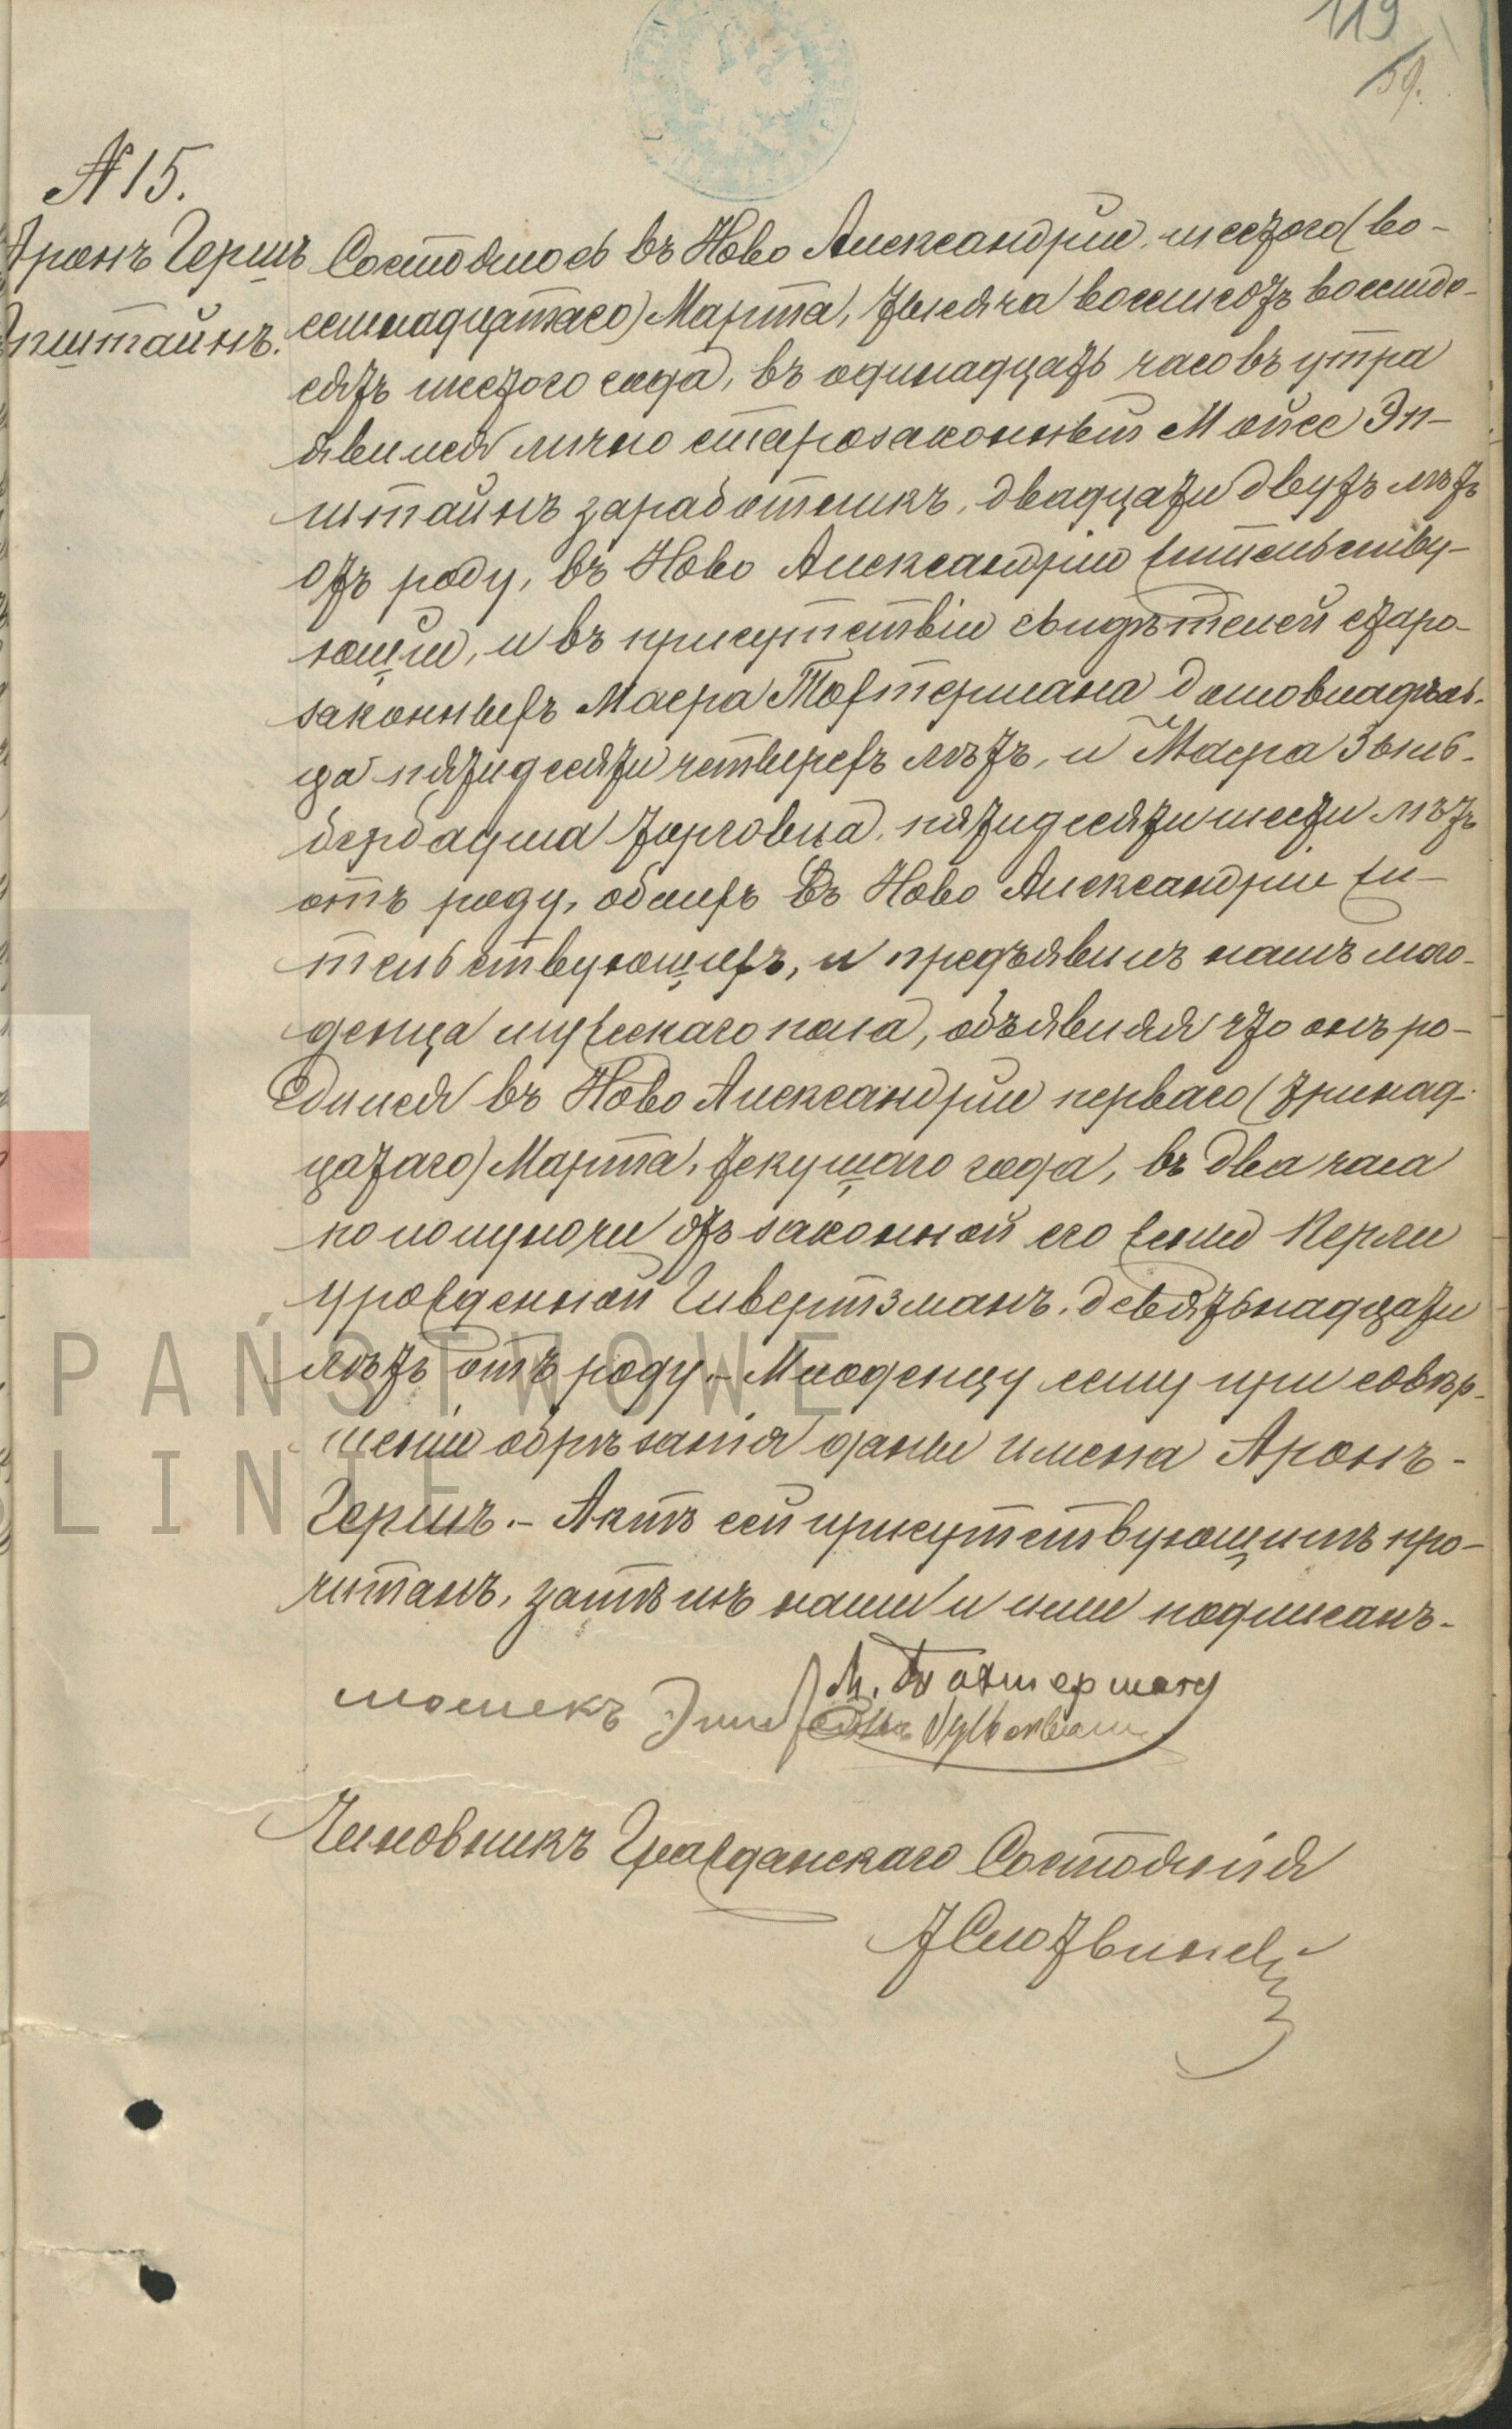 119
59.
№ 15.
Аронъ Гершъ
Эпштайнъ.
Состоялось въ Ново Александріи, шестого (во-
семнадцатаго) Марта, тысяча восемсотъ восемьде-
сятъ шестого года, въ одинадцать часовъ утра
явился лично старозаконный Мойсе Эп-
штайнъ заработникъ, двадцати двухъ лѣтъ
отъ роду, въ Ново Александріи жительству-
ющій, и въ присутствіи свидѣтелей старо-
законныхъ Маера Тохтермана домовладѣль-
ца пятидесяти четырехъ лѣтъ, и Маера Зыль-
бербаума торговца, пятидесяти шести лѣтъ
отъ роду, обоихъ въ Ново Александріи жи-
тельствующихъ, и предъявилъ намъ мла-
денца мужескаго пола, объявляя что онъ ро-
дился въ Ново Александріи перваго (тринад-
цатаго) Марта, текущаго года, въ два часа
по полуночи отъ законной его жены Перли
урожденной Гивертзманъ, девятьнадцати
лѣтъ отъ роду.- Младенцу сему при совер-
шеніи обрѣзанія даны имена Аронъ-
Гершъ.- Актъ сей присутствующимъ про-
читанъ, затѣмъ нами и ими подписанъ.-
М. Тохтерманъ
мошекъ
Чиновникъ Гражданскаго Состоянія